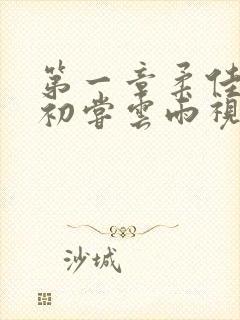 第一章柔佳
初尝云雨视
沙城